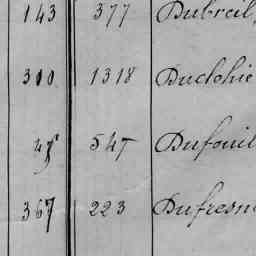 143 377 Dubreil,
310 1318 Duclohie
45 547 Dufouil
367 223 Dufresn